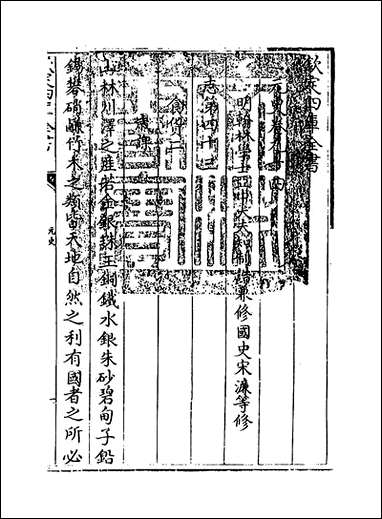 欽定四庫全書
元史卷九十四
明翰林學士亞中大夫知制誥兼修國史宋濂等修
志第四十三
食貨二
歲課
山林川澤之產若金銀珠玉銅鐵水銀朱砂碧甸子鉛
錫礬硝鹻竹木之類皆天地自然之利有國者之所必
元史